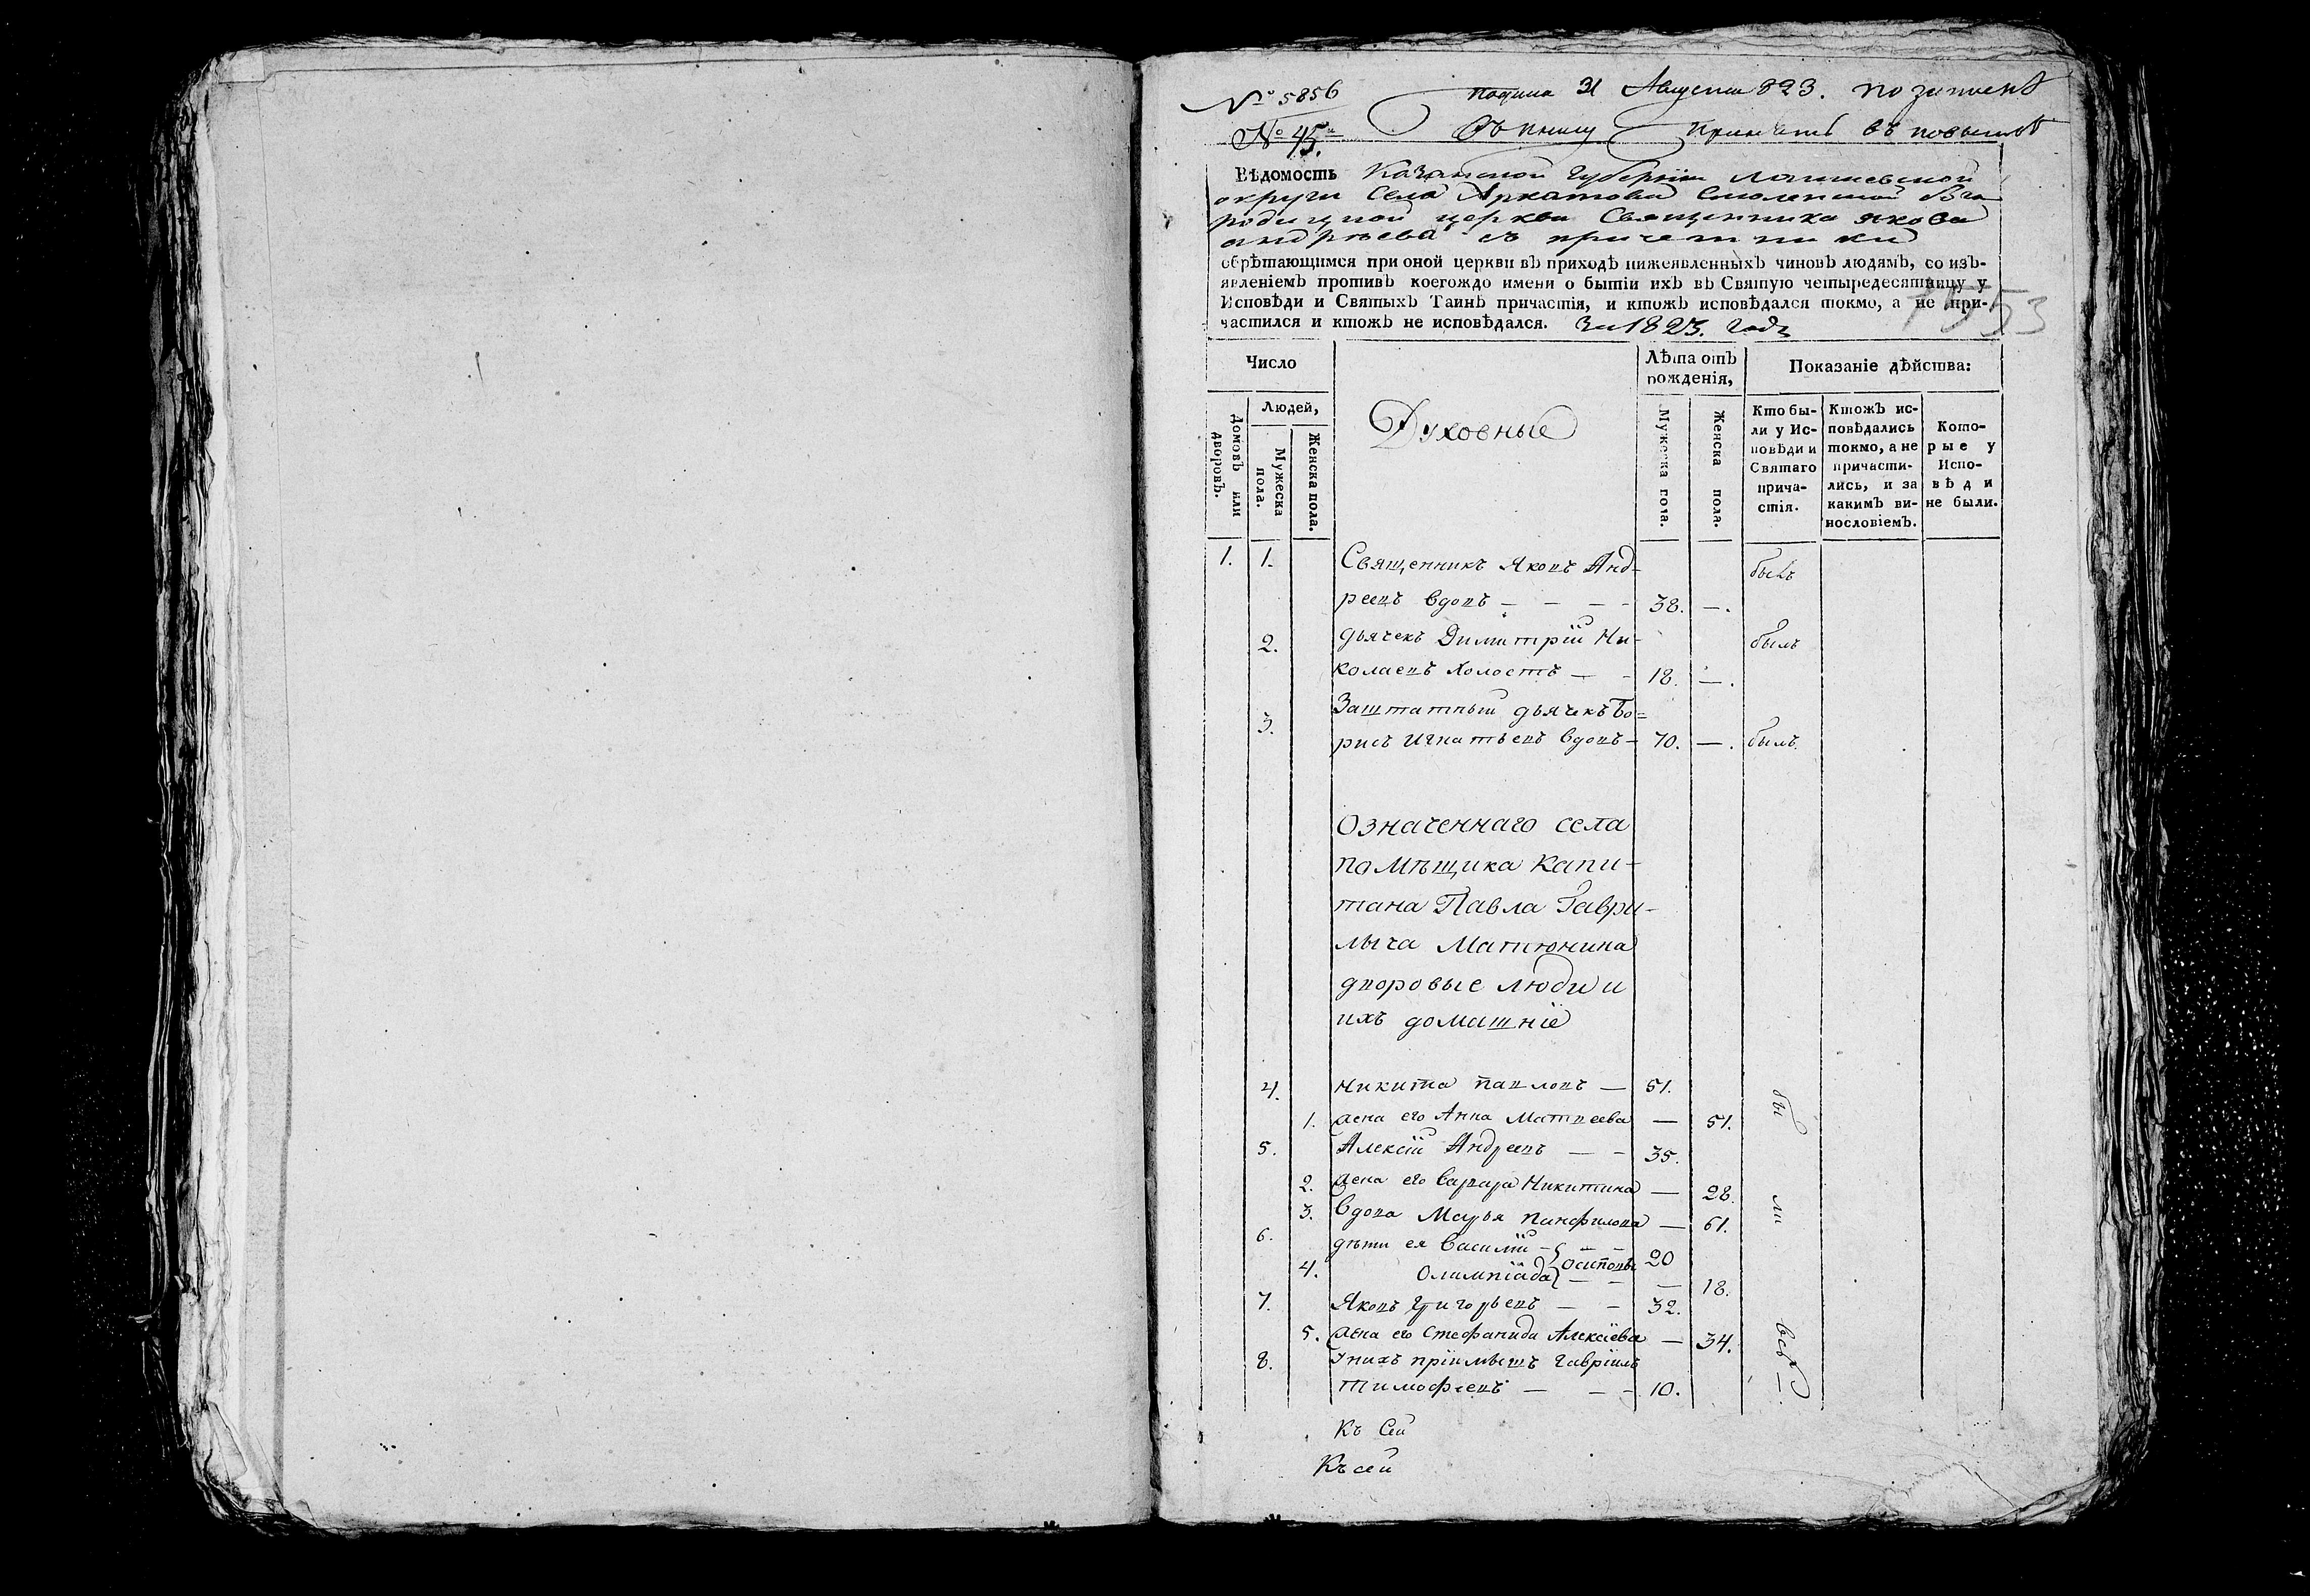 № 5856 подана 31 Августа 823. по записке
№ 45. въ книгу принять въ повытьѣ
Вѣдомость Казанской Губерніи Лаишевской
округи Села Аркатова Смоленской Бго
родицкой церкви Священника Якова
андрѣева съ причетники
обрѣтающимся при оной церкви въ приходѣ нижеявленныхъ чиновъ людямъ, со изъ-
явленіемъ противъ коегождо имени о бытіи ихъ въ Святую четыредесятницу у
Исповѣди и Святыхъ Таинъ причастія, и ктожъ исповѣдался токмо, а не при-
частился и ктожъ не исповѣдался. За 1823. годъ
Число
Лѣта отъ
рожденія,
Показаніе дѣйства:
Домовъ или
дворовъ.
Людей,
Мужеска
пола.
Женска пола.
Духовные
Мужеска пола.
Женска пола.
Кто бы-
ли у Ис-
повѣди и
Святаго
прича-
стія.
Ктожъ ис-
повѣдались
токмо, а не
причасти-
лись, и за
какимъ ви-
нословіемъ.
Кото-
рые у
Испо-
вѣди
не были.
1. 1. Священникъ Яковъ Анд- былъ
реевъ вдовъ — — — 38. —.
2. дьячекъ Димитрій Ни- былъ
колаевъ холостъ — - 18. —.
3. Заштатный дьячекъ Бо=
рисъ Игнатьевъ вдовъ - 70. —. былъ.
Означеннаго села
помѣщика Капи-
тана Павла Гаври-
лыча Матюнина
дворовые люди и
ихъ домашніе
4. Никита Павловъ — 51.
1. жена его Анна Матвеева — 51.
5. Алексій Андреевъ — - 35.
2. жена его Варвара Никитина — 28.
3. Вдова Марья Панфилова — 61.
6. дѣти ея Василій - { Осиповы 20
4. Олимпіада} — - — 18.
7. Яковъ Григорьевъ — - 32.
5. жена его Стефанида Алексіева — 34.
8. У нихъ пріимышъ Гавріилъ
Тимофеевъ — - - 10.
бы
ли
всѣ —.
Къ Сей
Къ сей